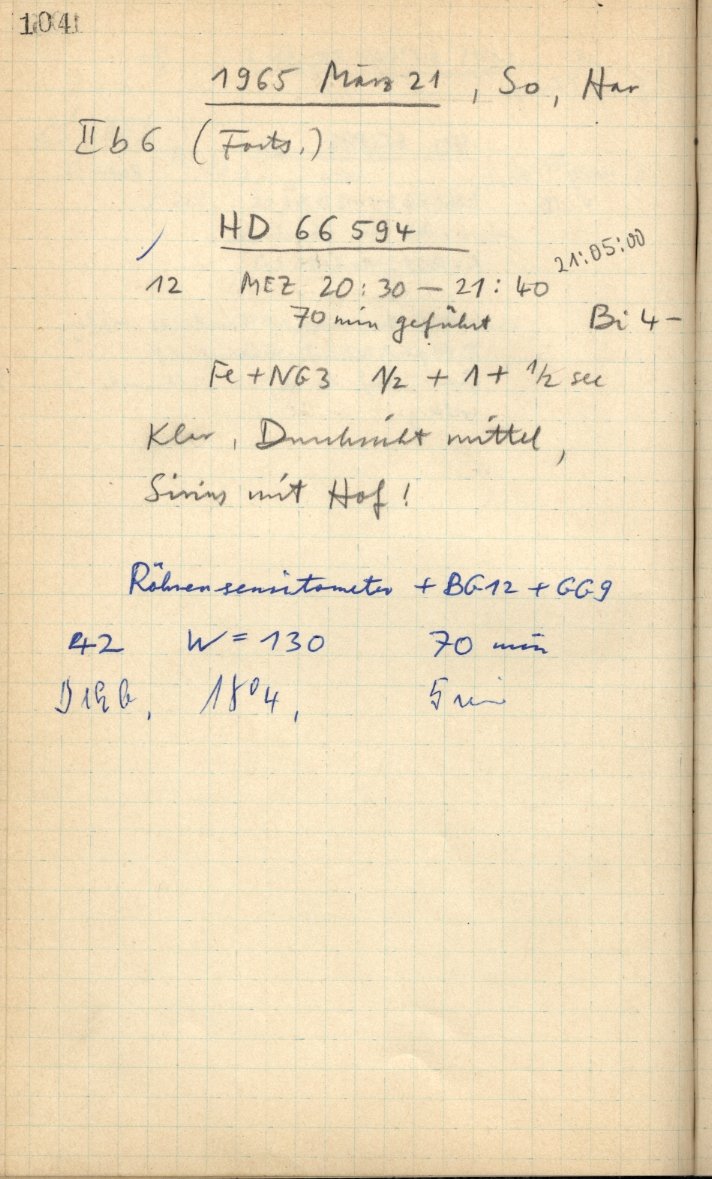 104
1965 März 21, So, Har
II b 6 (Forts.)
HD 66 594
21:05:00
12 MEZ 20:30 — 21:40
70 min geführt Bi 4 –
Fe + NG3 1/2 + 1 + 1/2 sec
Klar, Durchsicht mittel,
Sirius mit Hof!
Röhrensensitometer + BG12 + GG9
42 W = 130 70 min
D 19 b, 18°4, 5 min